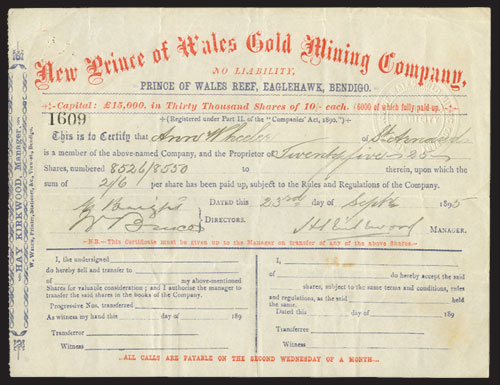 New Prince of Wales Gold Mining Company,
NO LIABILITY,
PRINCE OF WALES REEF, EAGLEHAWK, BENDIGO.
Capital: £15,000, in Thirty Thousand Shares of 10/- each. (6000 of which fully paid up.)
1609
(Registered under Part II. of the "Companies' Act, 1890.")
This is to Certify that Ann Wheeler of St Arnaud
is a member of the above-named Company, and the Proprietor of Twenty five 25
Shares, numbered 8526/8550 therein, upon which the
sum of 2/6 per share has been paid up, subject to the Rules and Regulations of the Company.
DATED this 23rd day of Sept 1895
DIRECTORS.
MANAGER.
NB—This Certificate must be given up to the Manager on transfer of any of the above Shares
I, the undersigned
do hereby sell and transfer to
of my above-mentioned
Shares for valuable consideration; and I authorise the manager to
transfer the said shares in the books of the Company.
Progressive Nos. transferred
As witness my hand this day of 189
Transferror
Witness
I,
of do hereby accept the said
shares, subject to the same terms and conditions, rules
and regulations, as the said held
the same.
Dated this day of 189
Transferree
Witness
...ALL CALLS ARE PAYABLE ON THE SECOND WEDNESDAY OF A MONTH...
HAY KIRKWOOD, Manager.